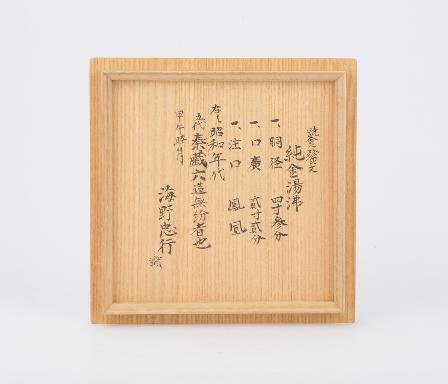 純金湯沸
一、胴径 四寸参分
一、口廣 貳寸貳分
一、注口 鳳凰
右ハ昭和年代
五代秦蔵六造無紛者也
甲午勝月
海野忠行